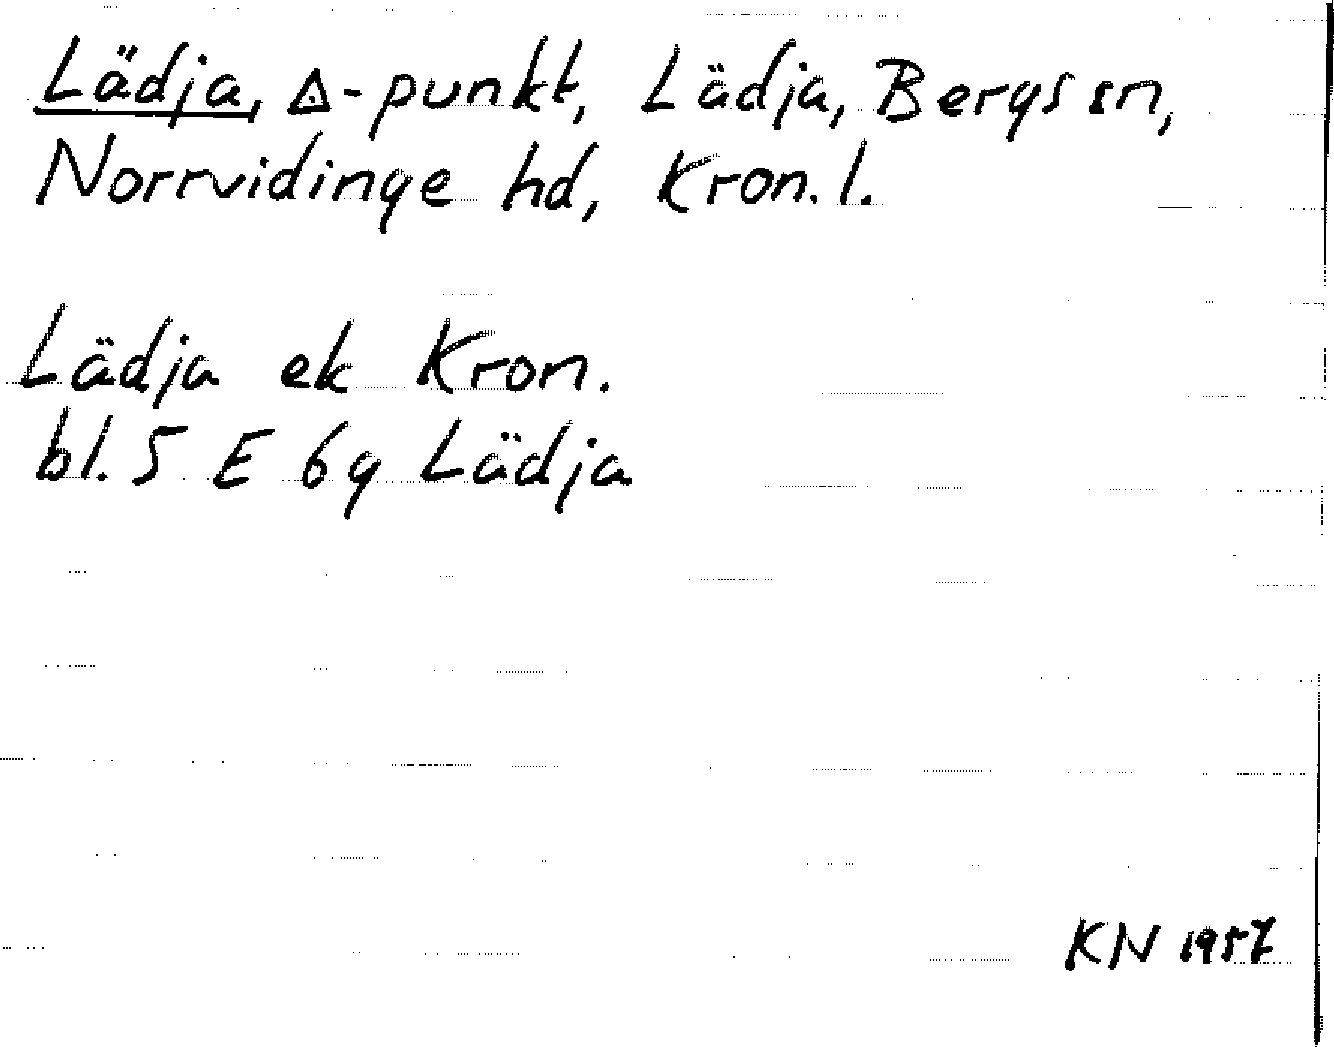 Lädja, △-punkt, Lädja, Bergs sn,
Norrvidinge hd, Kron. l.
Lädja ek Kron.
bl. 5 E 6g Lädja
KN 1957